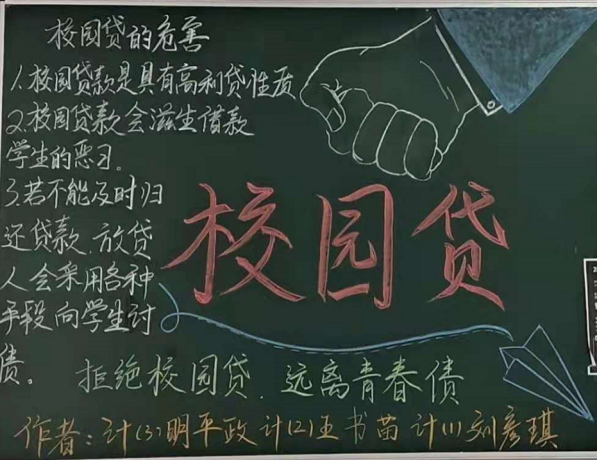 校园贷的危害
1.校园贷款是具有高利贷性质
2.校园贷款会滋生借款
学生的恶习。
3.若不能及时归
还贷款,放贷
人会采用各种
手段向学生讨
债。
校园贷
拒绝校园贷.远离青春债
作者:计(3)明平政 计(2)王书苗 计(1)刘彦琪